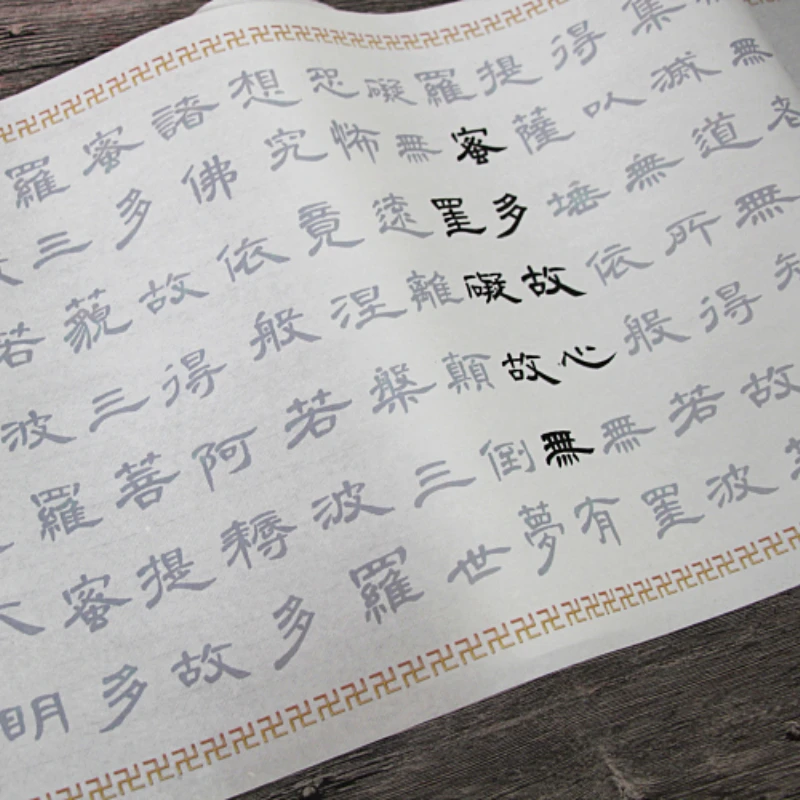 無老
集滅道無
得以無所得故
提薩埵依般若波
羅蜜多故心無罣
礙無罣礙故無有
恐怖遠離顛倒夢
想究竟涅槃三世
諸佛依般若波羅
蜜多故得阿耨多
羅三藐三菩提故
若波羅蜜多
大明